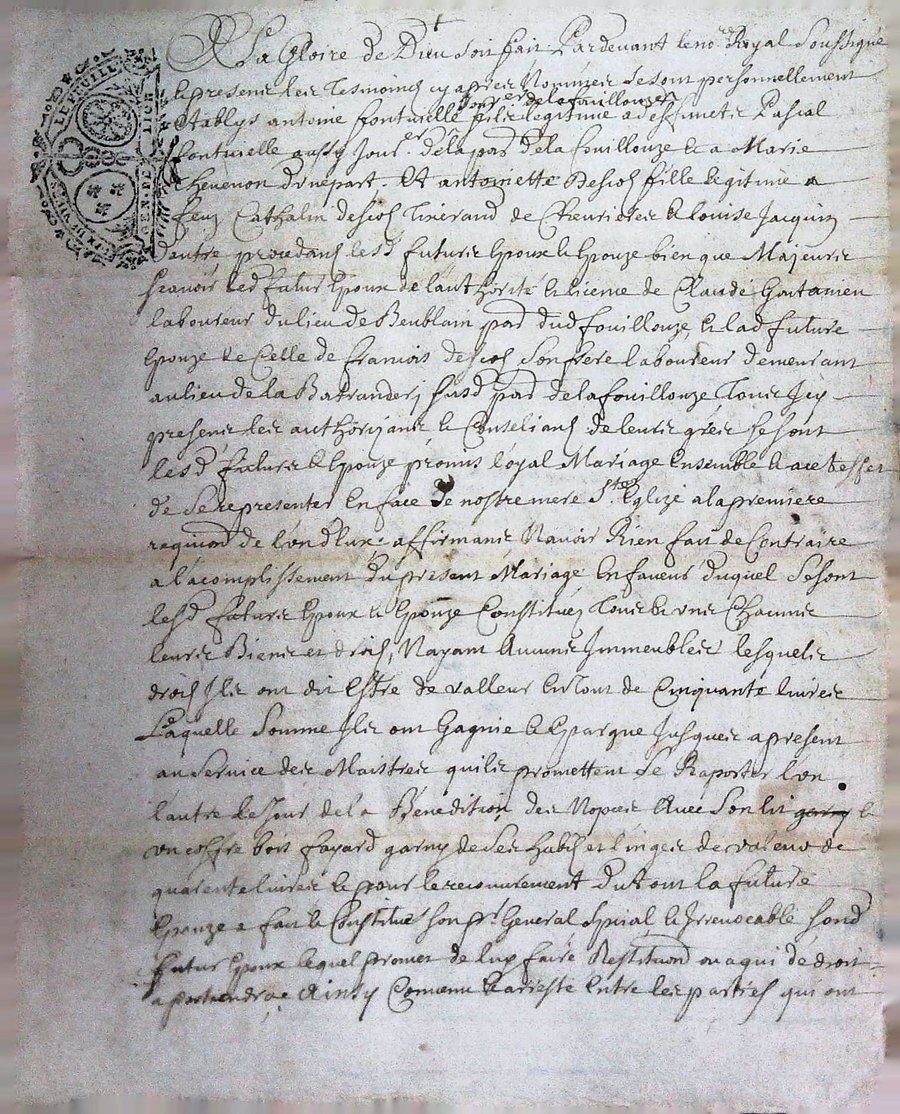 A La Gloire de Dieu soit fait Pardevant le nore Royal soussigné
et presens les Tesmoins cy apres Nommez se sont personnellement
Establys antoine fontvielle journer de la fouillouze filz legitime a def. mre Pascal
fontvielle aussy jour.er de la par.sse de la fouillouze et a Marie
Thevenon d'une part. Et antoinette Descos fille legitime a
feuz Cathalin descos Tisserand de Chevrieres et louise Jacquin
d'autre procedans lesd futurs Epoux et Epouze bien que Majeurs
scavoir led futur Epoux de l'authorité et licence de Claude
laboureur du lieu de par dud fouillouze et lad future
Epouze de Celle de francois descos son frere laboureur demeurant
au lieu de la susd par de la fouillouze Tous Icy
presens les authorizans et Conselians de leurs gréz se sont
lesd futurs et Epouze promis loyal Mariage Ensemble et a cet effet
de se representer En face de nostre mere Ste Eglize a la premiere
requi.on de l'un d'eux. affirmans N'avoir Rien fait de Contraire
a l'acomplissement du present Mariage En faveur duquel se sont
lesd futurs Epoux et Epouze Constitués Tous et uns Chacuns
leurs Biens et droits, N'ayant Aucuns Immeubles lesquels
droits Ils ont dit Estre de valleur En Tout de Cinquante livres
Laquelle Somme Ils ont Gagnie et Eparque Jusques a present
au Service des Maitres qu'ils promettent se Raporter l'un
l'autre le Jour de la Benediction des Nopces Avec Son lit garny et
un coffre bois fayard garny de ses habits et linges de valeur de
quarente livres Et pour le recouvrement du tout la future
Epouze a fait et Constitué son pr. General spécial et Irrevocable sond
futur Epoux lequel promet de luy faire Restitution ou a qui de droit
apartiendra Ainsy Convenu Et arresté Entre les parties qui ont